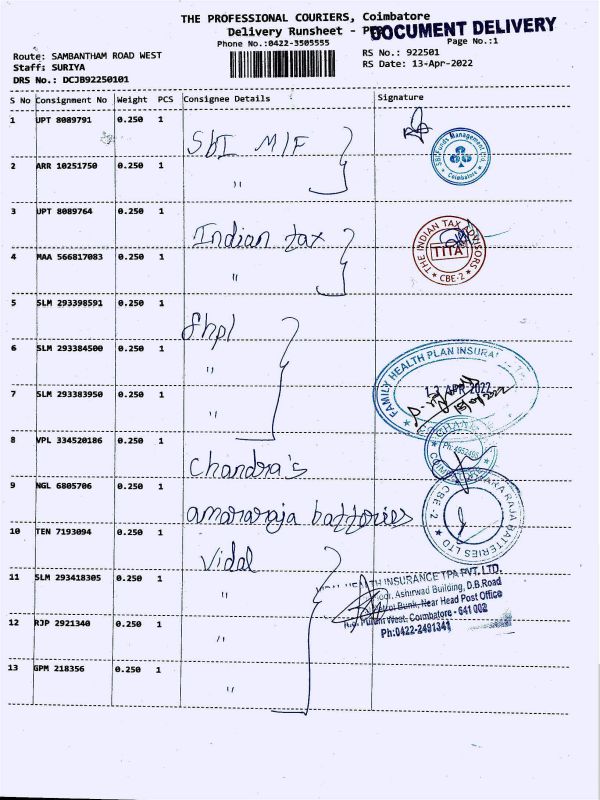 THE PROFESSIONAL COURIERS, Coimbatore
Delivery Runsheet -
DOCUMENT DELIVERY
Phone No.:0422-3505555
Page No.:1
Route: SAMBANTHAM ROAD WEST
RS No.: 922501
Staff: SURIYA
RS Date: 13-Apr-2022
DRS No.: DCJB92250101
S No Consignment No Weight PCS Consignee Details Signature
1 UPT 8089791 0.250 1 SbI M/F
SBI Funds Management
Coimbatore
2 ARR 10251750 0.250 1 "
3 UPT 8089764 0.250 1 Indian tax
THE INDIAN TAX ADVISORS
TITA
CBE-2
4 MAA 566817083 0.250 1 "
5 SLM 293398591 0.250 1 fhpl
6 SLM 293384500 0.250 1 "
FAMILY HEALTH PLAN INSURA
13 APR 2022
7 SLM 293383950 0.250 1 "
8 VPL 334520186 0.250 1 Chandra's
9 NGL 6805706 0.250 1 amararaja batteries
ARA RAJA BATTERIES LTD
CBE-2
10 TEN 7193094 0.250 1 Vidal
11 SLM 293418305 0.250 1 "
HEALTH INSURANCE TPA PVT. LTD.
Ashirwad Building, D.B.Road
Bunk, Near Head Post Office
West, Coimbatore - 641 002
Ph:0422-2491341
12 RJP 2921340 0.250 1 "
13 GPM 218356 0.250 1 "